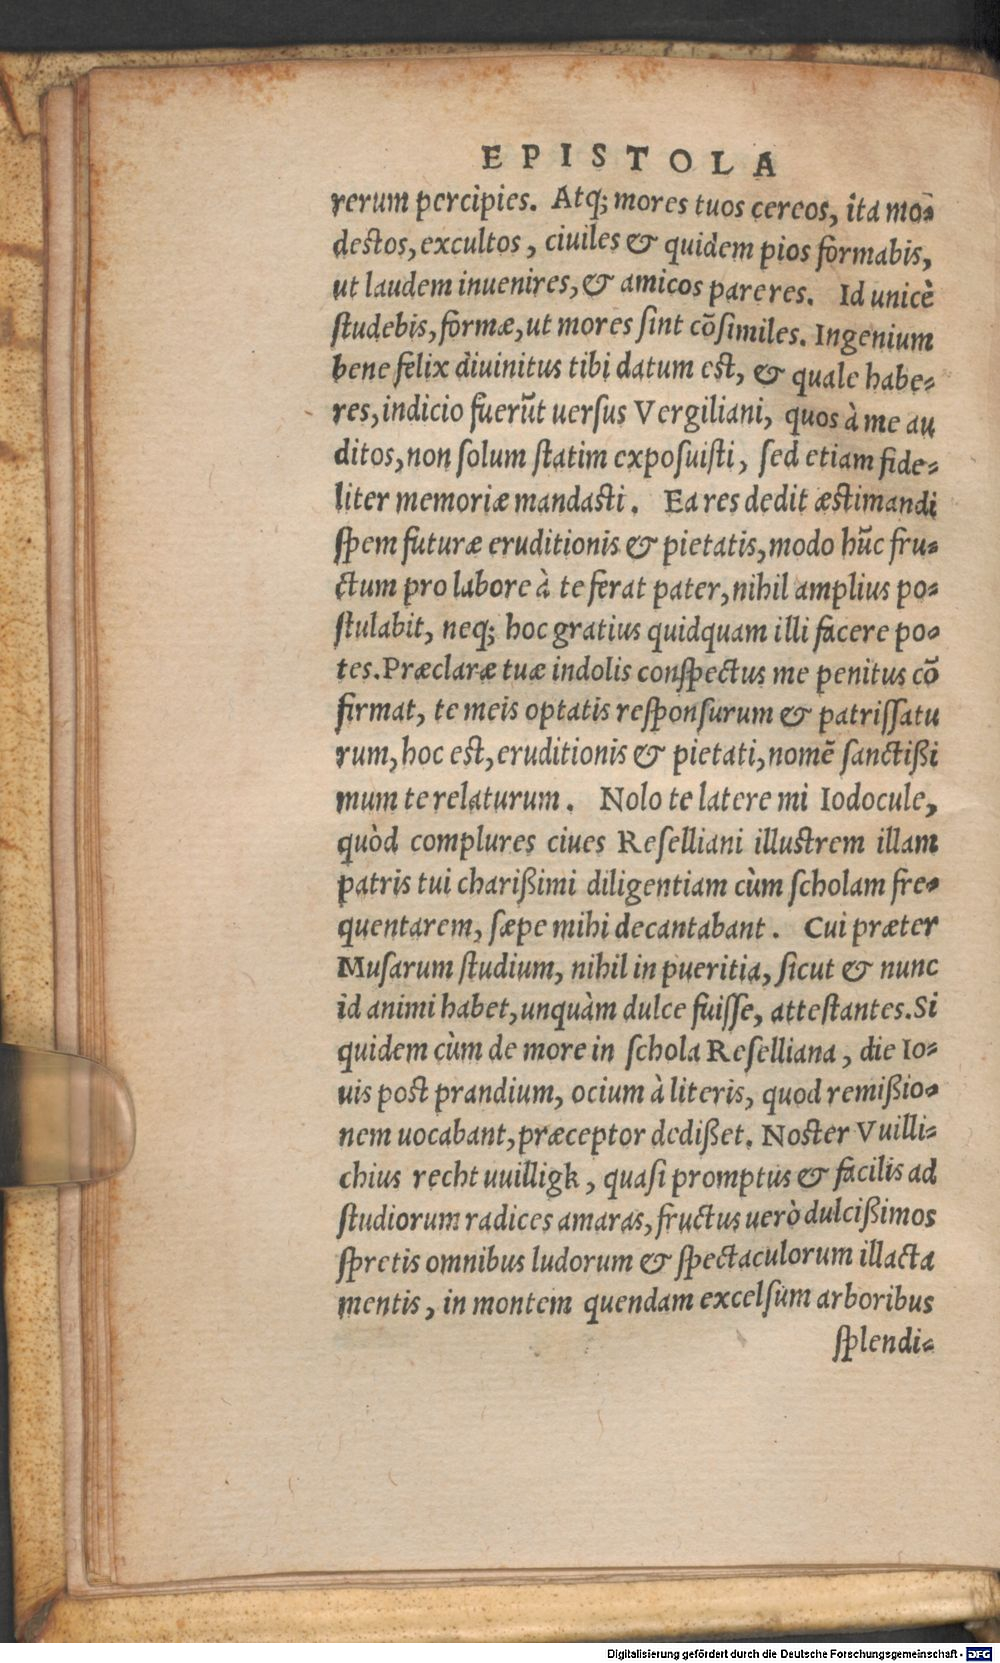 EPISTOLA
rerum percipies. Atq; mores tuos cereos, ita mo=
destos, excultos, ciuiles & quidem pios formabis,
ut laudem inuenires, & amicos pareres. Id unicè
ſtudebis, formæ, ut mores ſint cõſimiles. Ingenium
bene felix diuinitus tibi datum est, & quale habe=
res, indicio fuerũt uerſus Vergiliani, quos à me au
ditos, non ſolum ſtatim expoſuiſti, ſed etiam fide=
liter memoriæ mandaſti. Ea res dedit æſtimandi
ſpem futuræ eruditionis & pietatis, modo hũc fru=
ctum pro labore à te ferat pater, nihil amplius po=
ſtulabit, neq; hoc gratius quidquam illi facere po=
tes. Præclaræ tuæ indolis conſpectus me penitus cõ
firmat, te meis optatis reſponſurum & patriſſatu
rum, hoc est, eruditionis & pietati, nomẽ ſanctißi
mum te relaturum. Nolo te latere mi Iodocule,
quòd complures ciues Reſelliani illuſtrem illam
patris tui charißimi diligentiam cùm ſcholam fre=
quentarem, ſæpe mihi decantabant. Cui præter
Muſarum ſtudium, nihil in pueritia, ſicut & nunc
id animi habet, unquàm dulce fuiſſe, atteſtantes. Si
quidem cùm de more in ſchola Reſelliana, die Io=
uis poſt prandium, ocium à literis, quod remißio=
nem uocabant, præceptor dedißet. Noſter Vuilli=
chius recht uuilligk, quaſi promptus & facilis ad
ſtudiorum radices amaras, fructus uerò dulcißimos
ſpretis omnibus ludorum & ſpectaculorum illacta
mentis, in montem quendam excelſum arboribus
ſplendi=
Digitalisierung gefördert durch die Deutsche Forschungsgemeinschaft - DFG